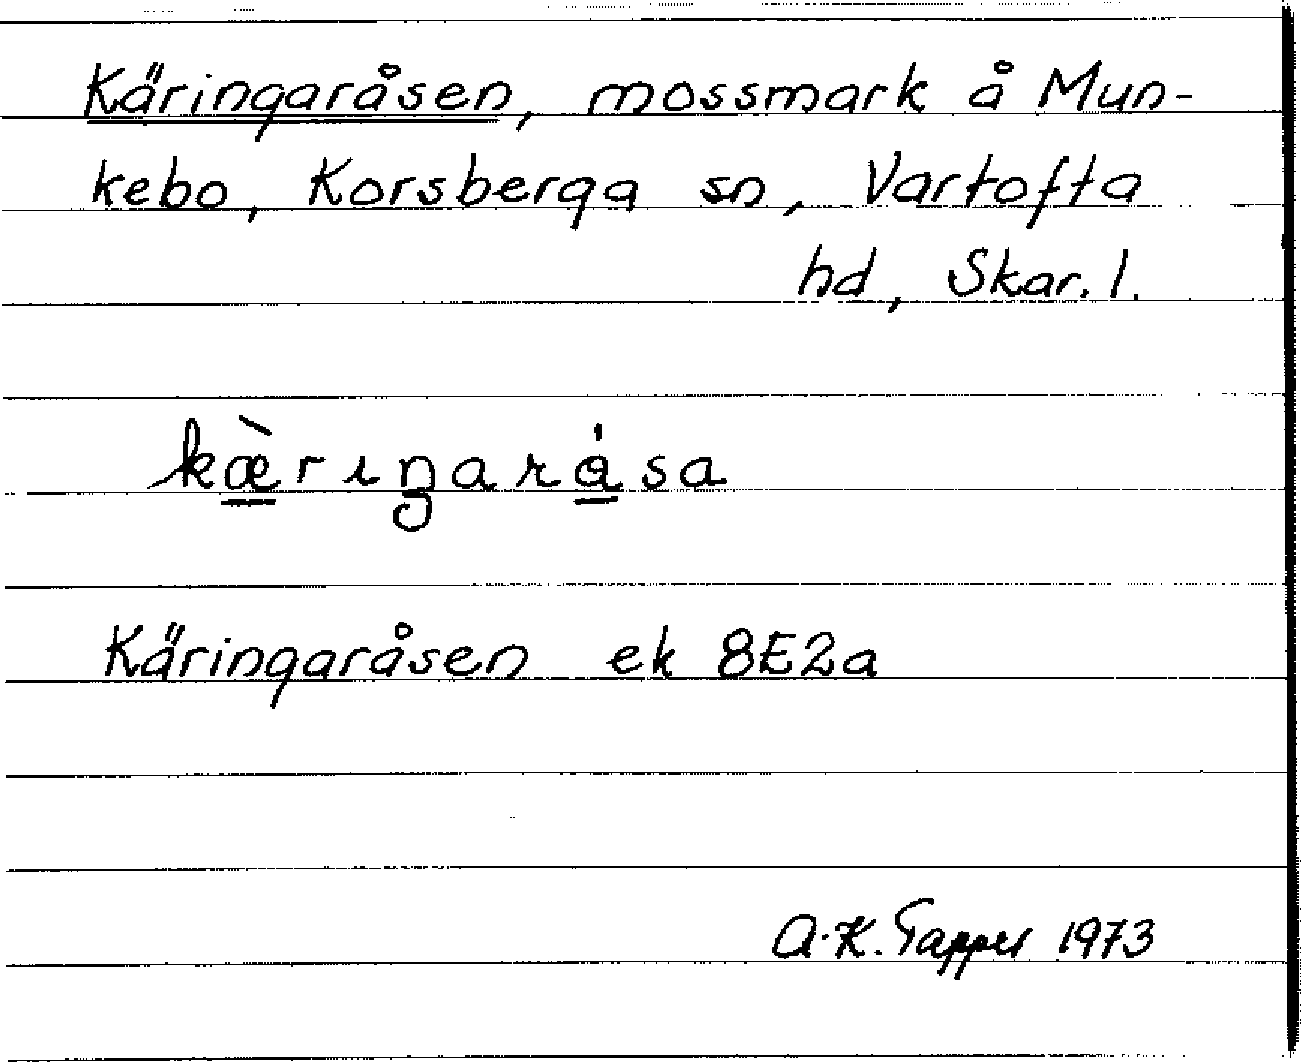 Käringaråsen, mossmark å Mun-
kebo, Korsberga sn, Vartofta
hd, Skar. l.
kæ̀rıŋaråsa
Käringaråsen ek 8E2a
A.K. Tapper 1973